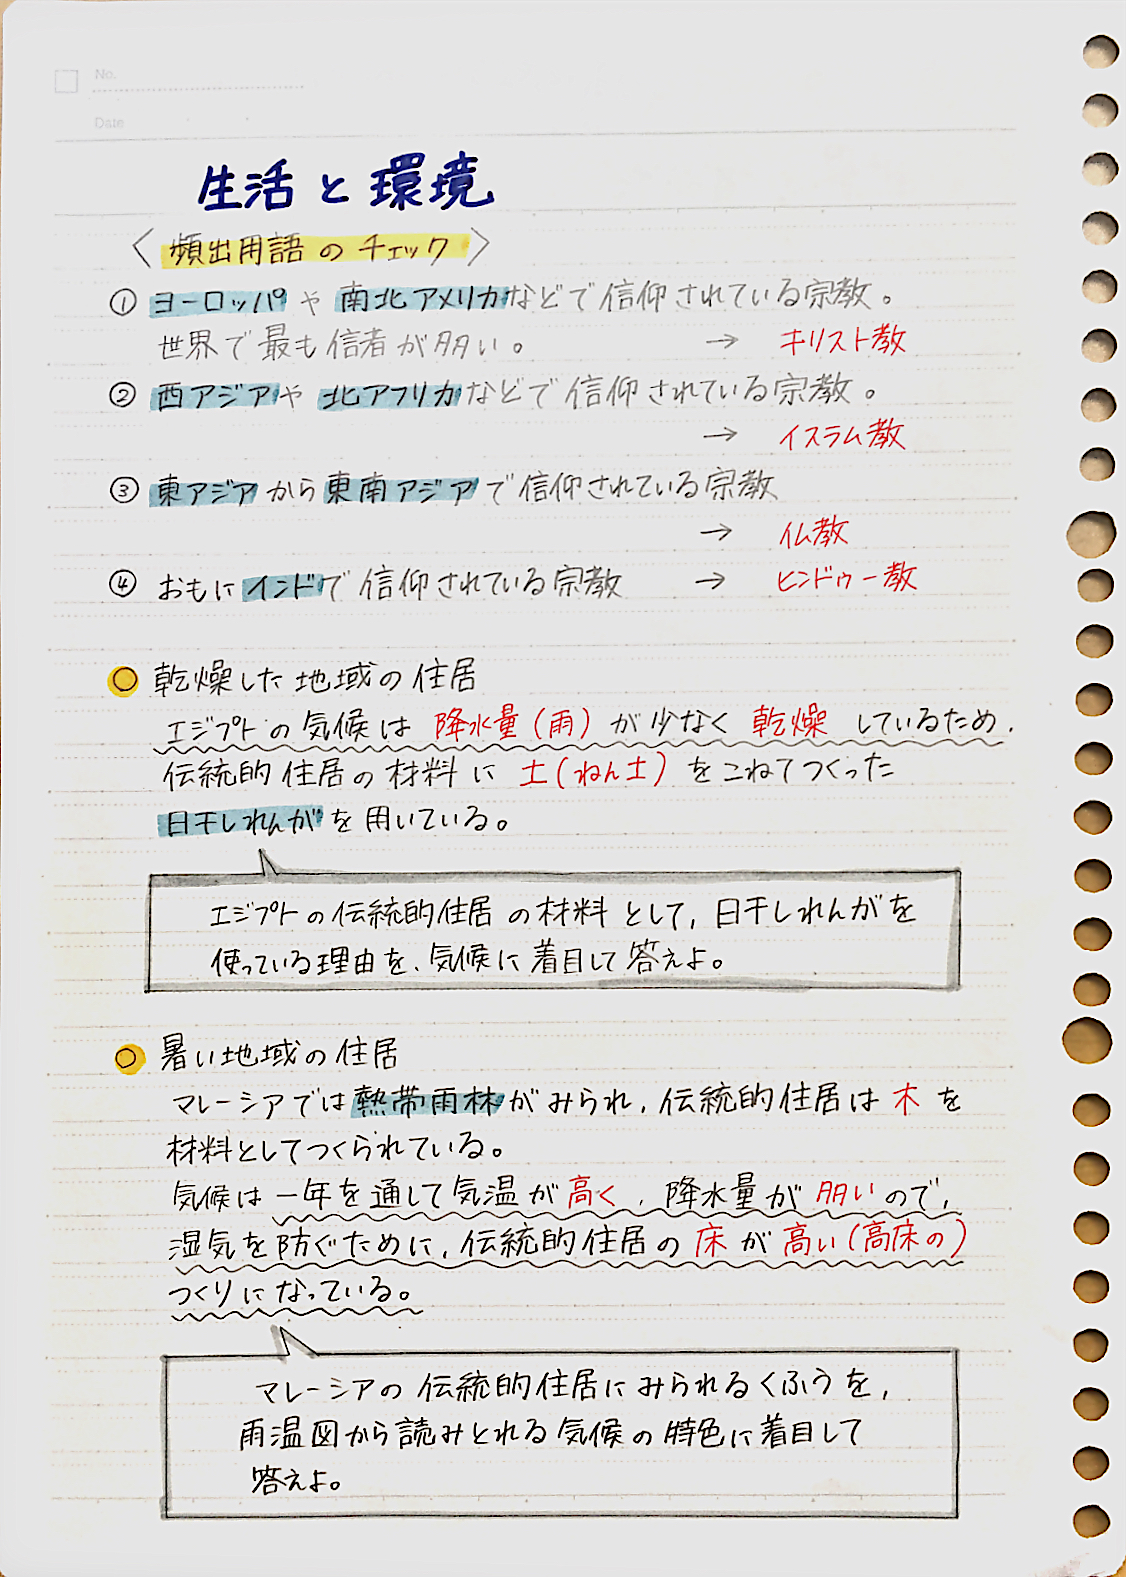 No.
Date
生活と環境
〈頻出用語のチェック〉
① ヨーロッパや南北アメリカなどで信仰されている宗教。
世界で最も信者が多い。 → キリスト教
② 西アジアや北アフリカなどで信仰されている宗教。
→ イスラム教
③ 東アジアから東南アジアで信仰されている宗教
→ 仏教
④ おもにインドで信仰されている宗教 → ヒンドゥー教
乾燥した地域の住居
エジプトの気候は降水量(雨)が少なく乾燥しているため、
伝統的住居の材料に土(ねん土)をこねてつくった
日干しれんがを用いている。
エジプトの伝統的住居の材料として、日干しれんがを
使っている理由を、気候に着目して答えよ。
暑い地域の住居
マレーシアでは熱帯雨林がみられ、伝統的住居は木を
材料としてつくられている。
気候は一年を通して気温が高く、降水量が多いので、
湿気を防ぐために、伝統的住居の床が高い(高床の)
つくりになっている。
マレーシアの伝統的住居にみられるくふうを、
雨温図から読みとれる気候の特色に着目して
答えよ。